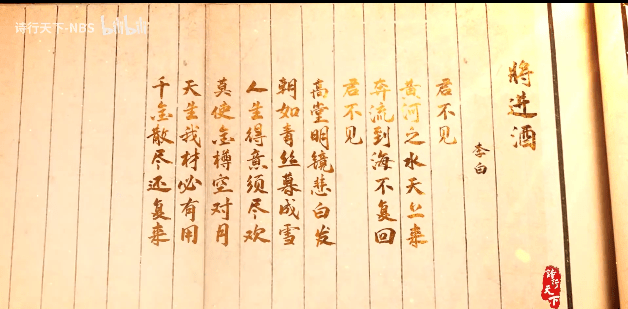 诗行天下-NB'S bilibili
将进酒
李白
君不见
黄河之水天上来
奔流到海不复回
君不见
高堂明镜悲白发
朝如青丝暮成雪
人生得意须尽欢
莫使金樽空对月
天生我材必有用
千金散尽还复来
诗行天下